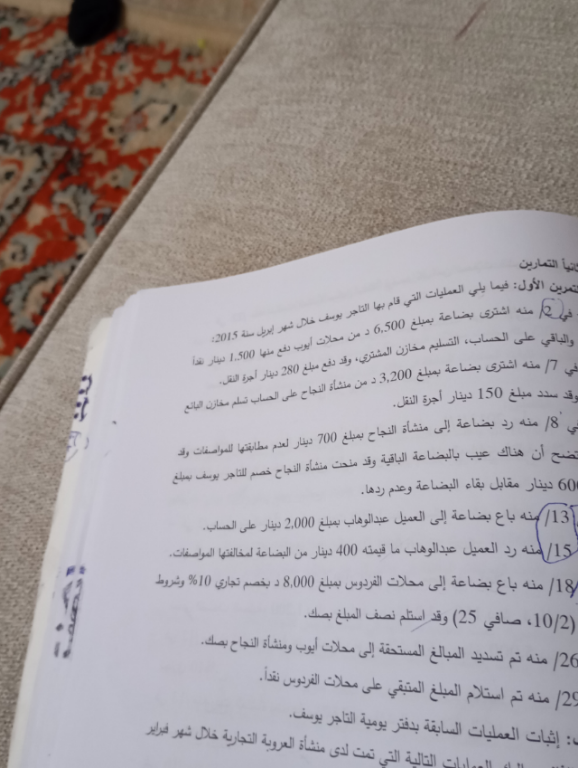 ثانياً التمارين
التمرين الأول: فيما يلي العمليات التي قام بها التاجر يوسف خلال شهر إبريل سنة 2015:
في 2/ منه اشترى بضاعة بمبلغ 6,500 د من محلات أيوب دفع منها 1,500 دينار نقداً
والباقي على الحساب، التسليم مخازن المشتري، وقد دفع مبلغ 280 دينار أجرة النقل.
في 7/ منه اشترى بضاعة بمبلغ 3,200 د من منشأة النجاح على الحساب تسلم مخازن البائع
وقد سدد مبلغ 150 دينار أجرة النقل.
في 8/ منه رد بضاعة إلى منشأة النجاح بمبلغ 700 دينار لعدم مطابقتها للمواصفات وقد
تضح أن هناك عيب بالبضاعة الباقية وقد منحت منشأة النجاح خصم للتاجر يوسف بمبلغ
600 دينار مقابل بقاء البضاعة وعدم ردها.
13/ منه باع بضاعة إلى العميل عبدالوهاب بمبلغ 2,000 دينار على الحساب.
15/ منه رد العميل عبدالوهاب ما قيمته 400 دينار من البضاعة لمخالفتها المواصفات.
18/ منه باع بضاعة إلى محلات الفردوس بمبلغ 8,000 د بخصم تجاري 10% وشروط
(10/2، صافي 25) وقد استلم نصف المبلغ بصك.
26/ منه تم تسديد المبالغ المستحقة إلى محلات أيوب ومنشأة النجاح بصك.
29/ منه تم استلام المبلغ المتبقي على محلات الفردوس نقداً.
ب: إثبات العمليات السابقة بدفتر يومية التاجر يوسف.
العمليات التالية التي تمت لدى منشأة العروبة التجارية خلال شهر فبراير